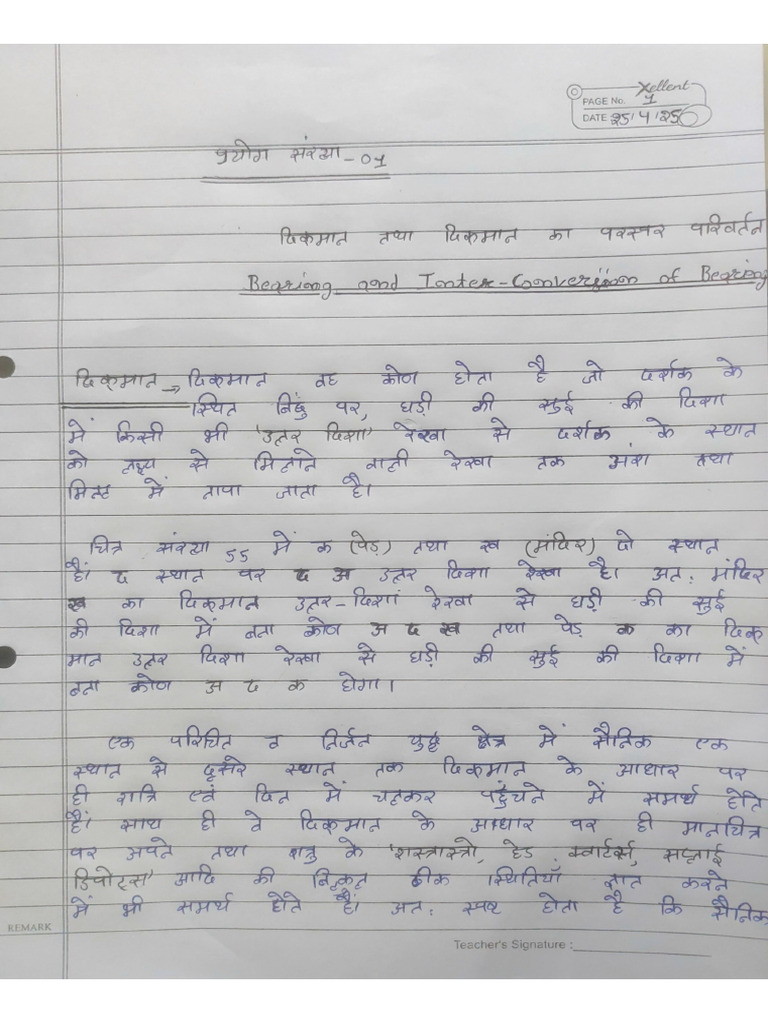 Xellent
PAGE No. 1
DATE 25/4/25
प्रयोग संख्या - 01
दिक्मान तथा दिक्मान का परस्पर परिवर्तन
Bearing and Inter-Conversion of Bearing
दिक्मान → दिक्मान वह कोण होता है जो दर्शक के
स्थित बिंदु पर, घड़ी की सुई की दिशा
में किसी भी 'उत्तर दिशा' रेखा से दर्शक के स्थान
को लक्ष्य से मिलाने वाली रेखा तक अंश तथा
मिनट में नापा जाता है।
चित्र संख्या 55 में क (पेड़) तथा ख (मंदिर) दो स्थान
हैं। द स्थान पर द अ उत्तर दिशा रेखा है। अत: मंदिर
ख का दिक्मान उत्तर-दिशा रेखा से घड़ी की सुई
की दिशा में बना कोण अ द ख तथा पेड़ क का दिक्
मान उत्तर दिशा रेखा से घड़ी की सुई की दिशा में
बना कोण अ द क होगा।
एक परिचित व निर्जन युद्ध क्षेत्र में सैनिक एक
स्थान से दूसरे स्थान तक दिक्मान के आधार पर
ही रात्रि एवं दिन में चलकर पहुंचने में समर्थ होते
हैं। साथ ही वे दिक्मान के आधार पर ही मानचित्र
पर अपने तथा शत्रु के 'शस्त्रास्त्रो, हेड क्वार्टर्स, सप्लाई
डिपोट्स' आदि की बिल्कुल ठीक स्थितियाँ ज्ञात करने
में भी समर्थ होते हैं। अत: स्पष्ट होता है कि सैनिक
REMARK
Teacher's Signature :